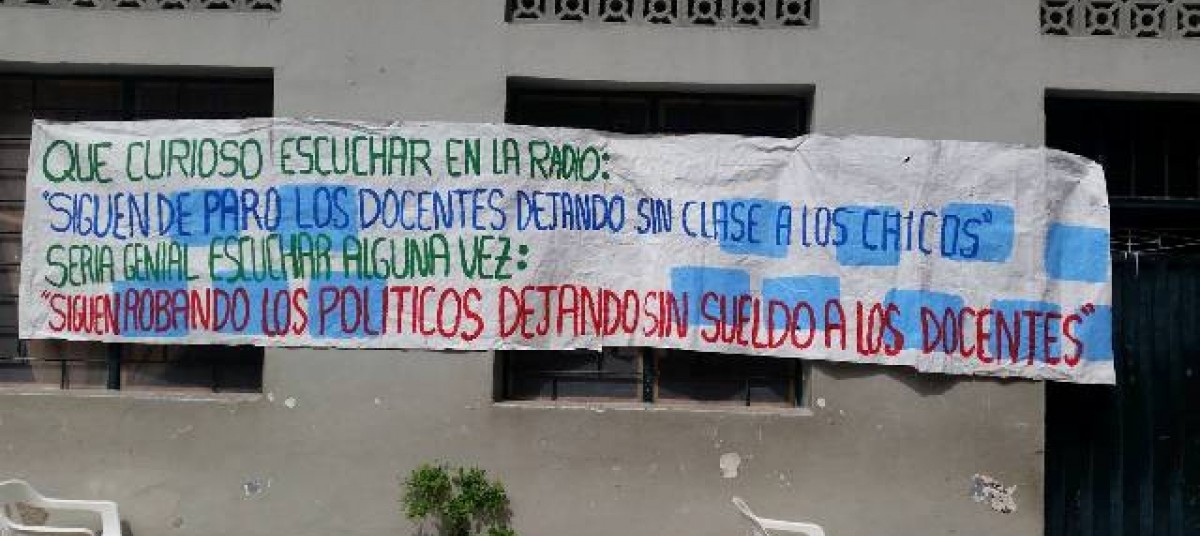 QUE CURIOSO ESCUCHAR EN LA RADIO:
"SIGUEN DE PARO LOS DOCENTES DEJANDO SIN CLASE A LOS CHICOS"
SERIA GENIAL ESCUCHAR ALGUNA VEZ:
"SIGUEN ROBANDO LOS POLITICOS DEJANDO SIN SUELDO A LOS DOCENTES"